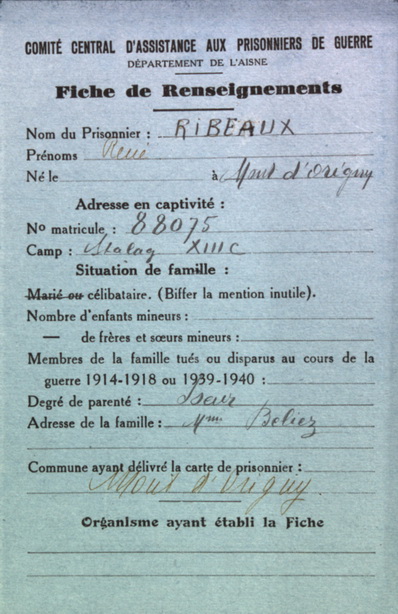 COMITÉ CENTRAL D'ASSISTANCE AUX PRISONNIERS DE GUERRE
DÉPARTEMENT DE L'AISNE
Fiche de Renseignements
Nom du Prisonnier : RIBEAUX
Prénoms René
Né le à Mont d'Origny
Adresse en captivité :
No matricule : 88075
Camp : Stalag XIIIC
Situation de famille :
Marié ou célibataire. (Biffer la mention inutile).
Nombre d'enfants mineurs :
— de frères et sœurs mineurs :
Membres de la famille tués ou disparus au cours de la
guerre 1914-1918 ou 1939-1940 :
Degré de parenté : Sœur
Adresse de la famille : Mme Beliez
Commune ayant délivré la carte de prisonnier :
Mont d'Origny.
Organisme ayant établi la Fiche